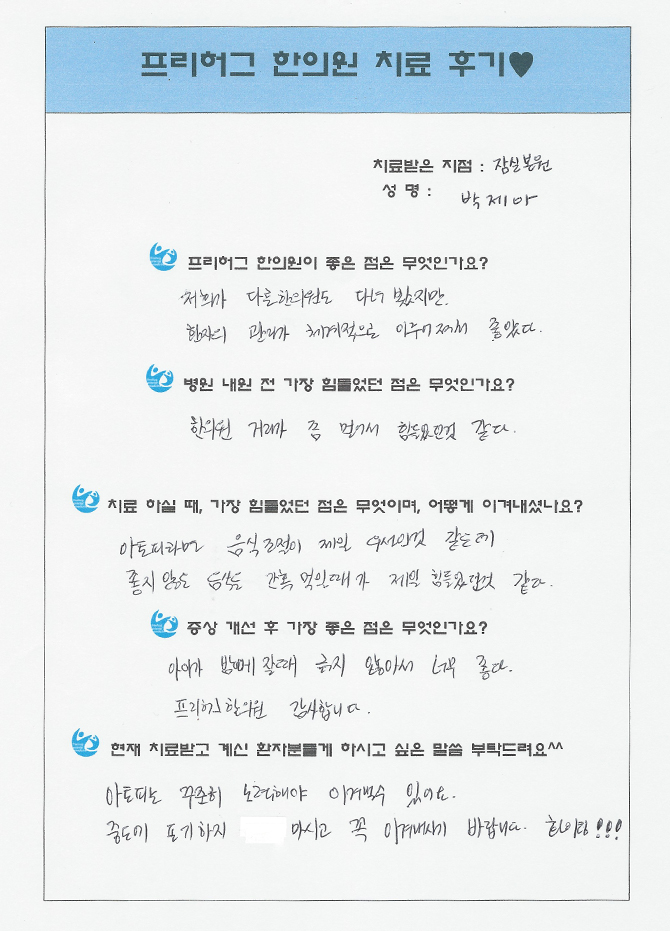 프리허그 한의원 치료 후기♥
치료받은 지점 : 잠실본원
성 명 : 박제아
프리허그 한의원이 좋은 점은 무엇인가요?
저희가 다른한의원도 다녀 봤지만.
환자의 관리가 체계적으로 이루어져서 좋았다.
병원 내원 전 가장 힘들었던 점은 무엇인가요?
한의원 거리가 좀 멀어서 힘들었던것 같다.
치료 하실 때, 가장 힘들었던 점은 무엇이며, 어떻게 이겨내셨나요?
아토피라면 음식조절이 제일 우선인것 같은데
좋지 않은 음식을 간혹 먹일때가 제일 힘들었던것 같다.
증상 개선 후 가장 좋은 점은 무엇인가요?
아이가 밤에 잘때 긁지 않아서 너무 좋다.
프리허그한의원 감사합니다.
현재 치료받고 계신 환자분들게 하시고 싶은 말씀 부탁드려요^^
아토피는 꾸준히 노력해야 이겨낼수 있어요.
중도에 포기하지 마시고 꼭 이겨내시기 바랍니다. 화이팅!!!